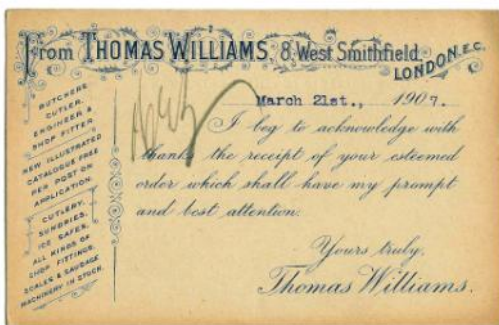 From THOMAS WILLIAMS, 8, West Smithfield,
LONDON, E.C.
March 21st., 1907.
BUTCHERS
CUTLER,
ENGINEER &
SHOP FITTER
NEW ILLUSTRATED
CATALOGUE FREE
PER POST ON
APPLICATION.
CUTLERY,
SUNDRIES,
ICE SAFES,
ALL KINDS OF
SHOP FITTINGS,
SCALES & SAUSAGE
MACHINERY IN STOCK.
I beg to acknowledge with
thanks the receipt of your esteemed
order which shall have my prompt
and best attention.
Yours truly,
Thomas Williams.